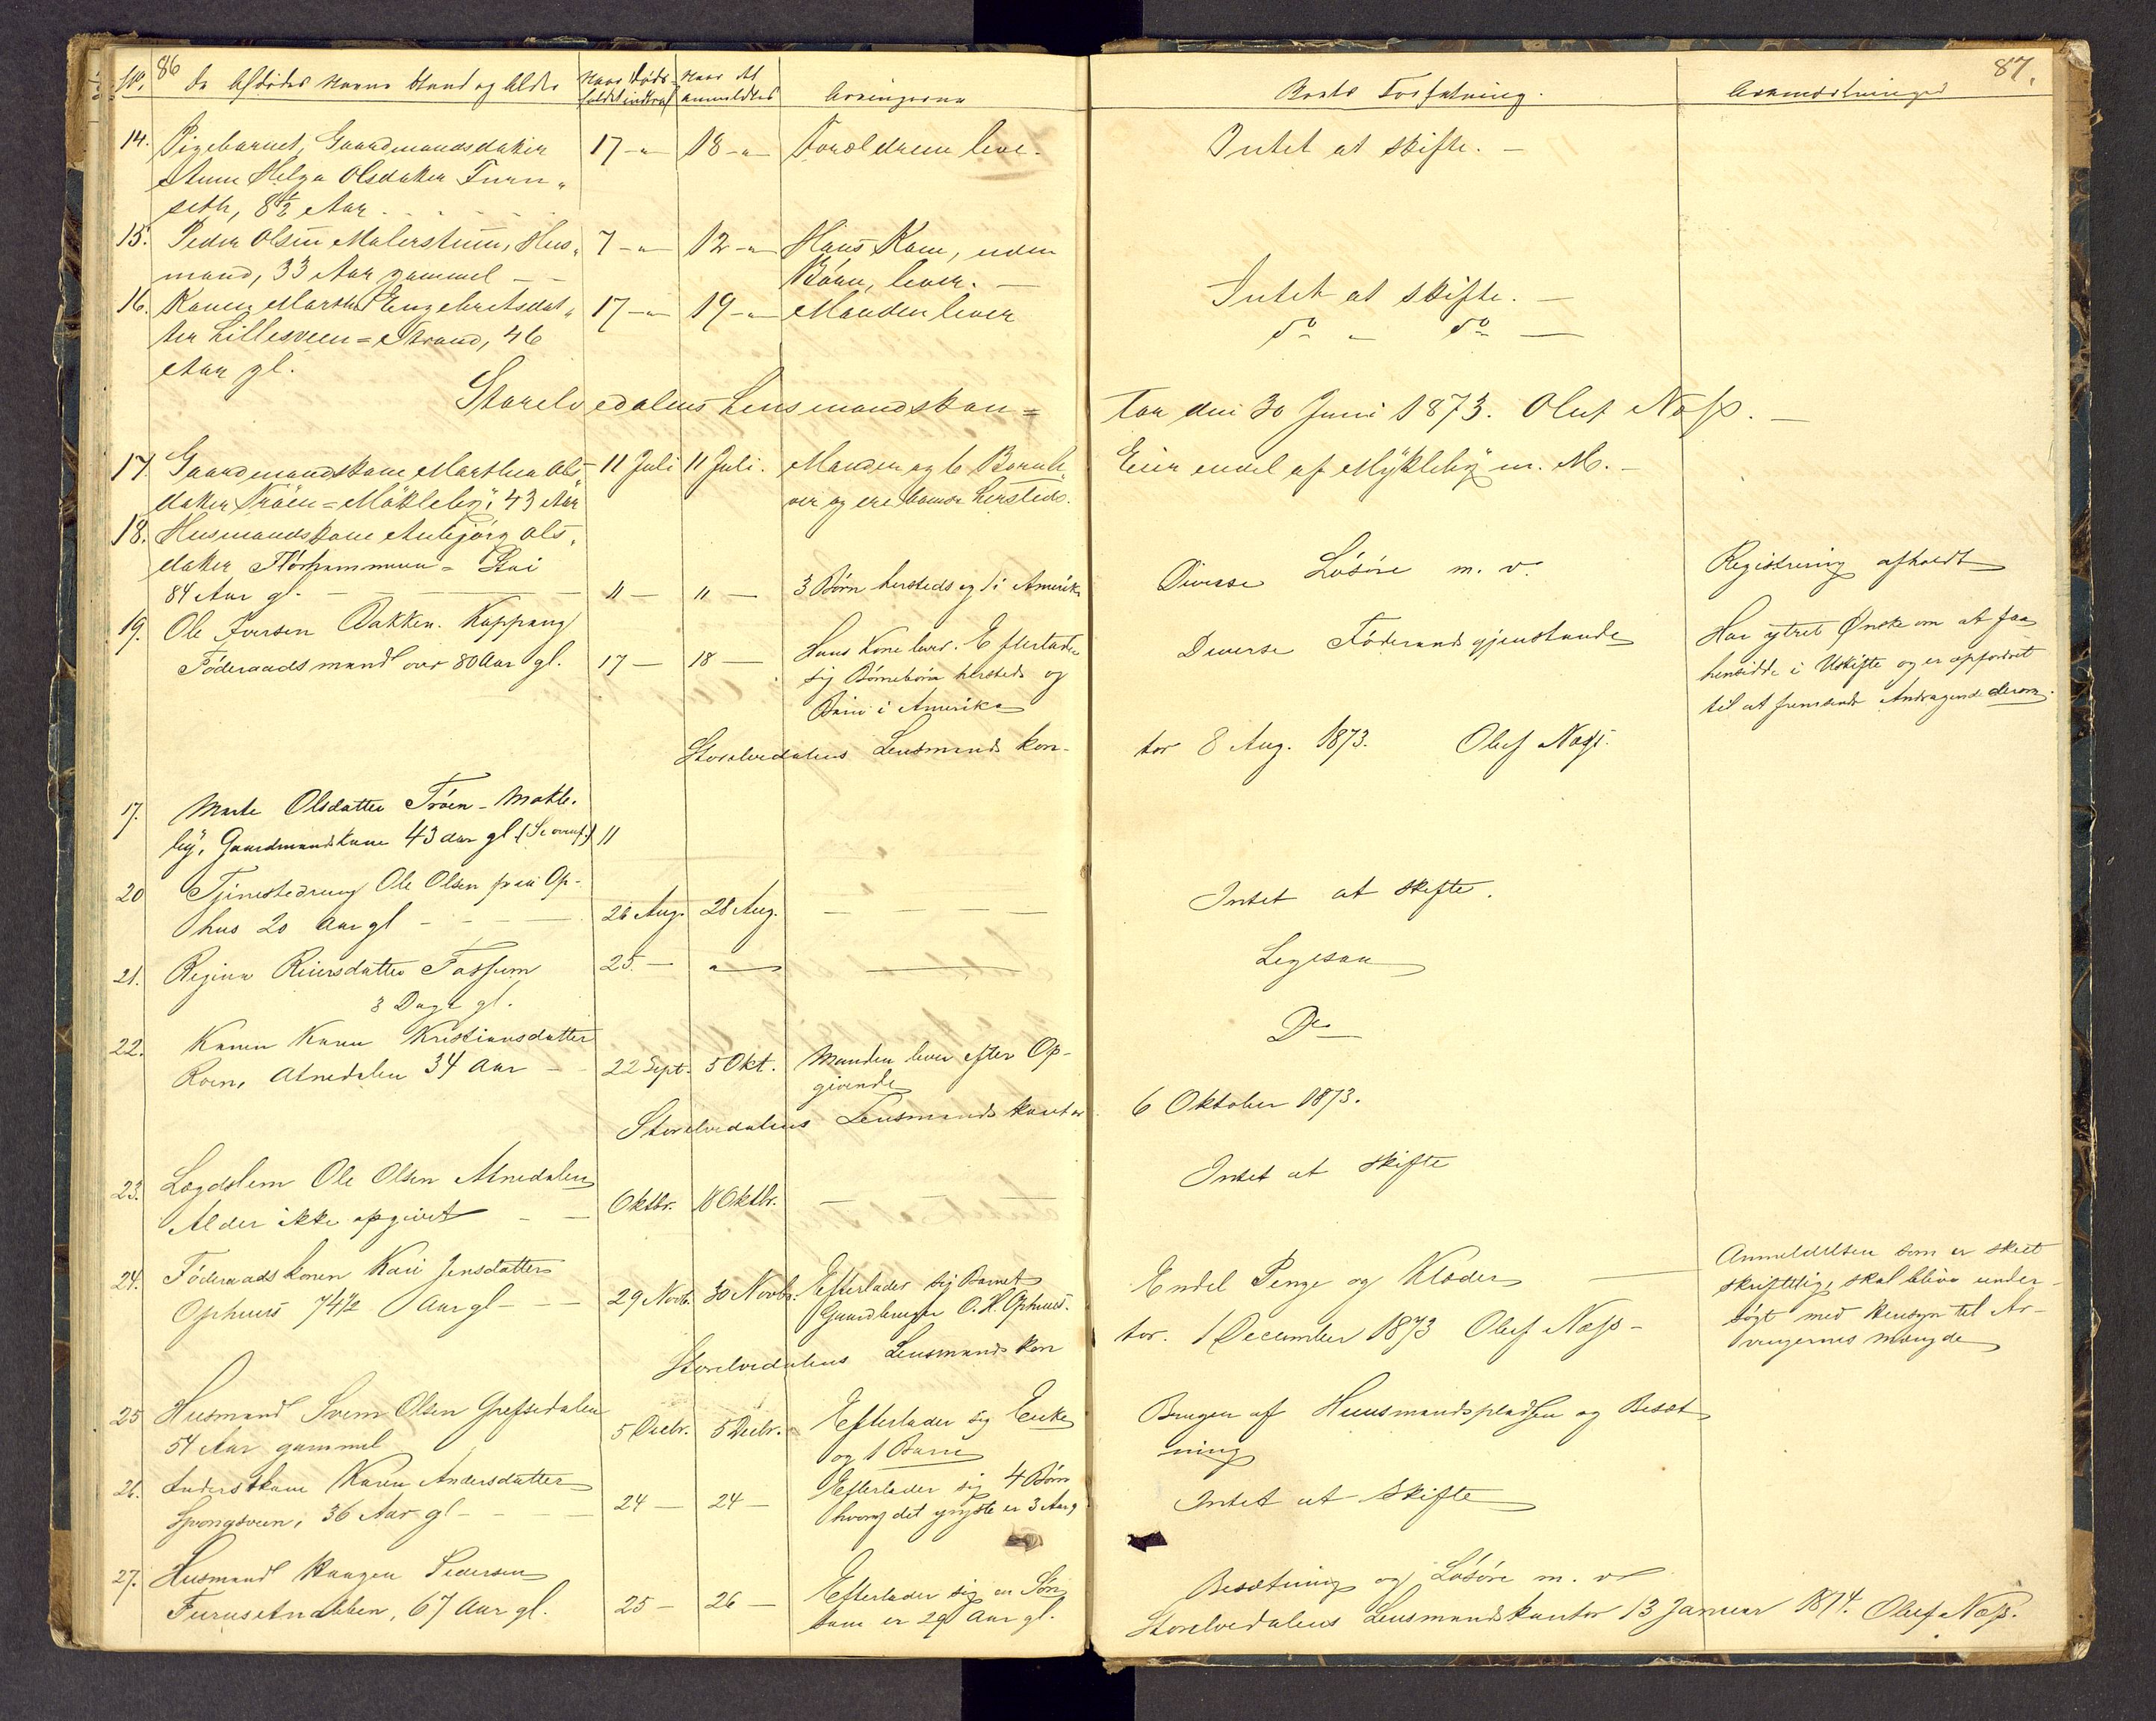 86
No. De Afdødes Navne Stand og Alder Naar Døds- Naar det
faldet indtraf anmeldtes Arvingerne
14. Pigebarnet, Gaardmandsdatter 17 - " 18 - " Forældrene leve.
Anne Helga Olsdatter Furu„
seth, 8½ Aar
15. Peder Olsen Malerstuen, Hus„ 7 - " 12 - " Hans Kone, uden
mand, 33 Aar gammel — Børn, lever. —
16. Konen Marthe Engebretsdat„ 17 - " 19 - " Manden lever
ter Lillesveen = Strand, 46
Aar gl.
Storelvedalens Lensmandskon=
17. Gaardmandskone Marthea Ols- 11 Juli 11 Juli. Manden og 6 Børn le„
datter Trøen = Møkleby, 43 Aar ver og ere samme hersteds.
18. Husmandskone Anbjørg Ols„
datter - Stai
84 Aar gl. — 11 — 11 — 3 Børn hersteds og 1 i Amerika
19. Ole Iversen Bakken. Koppang
Føderaadsmand over 80 Aar gl. 17 — 18 — Hans Kone lever. Efterlader
sig Børnebørn hersteds og
Børn i Amerika
Storelvedalens Lensmandskon-
17. Marte Olsdatter Trøen - Møkle-
by, Gaardmandskone 43 Aar gl. (Se ovenf.) 11
20 Tjenestedreng Ole Olsen fra Op-
hus 20 Aar gl - 26 Aug. 28 Aug. — — — —
21. Regine Reiersdatter Fossum 25. — " —
3 Dage gl.
22. Konen Karen Kristiansdatter
Roen, Atnedalen 34 Aar - 22 Sept. 5 Okt. Manden lever efter Op-
givende
Storelvedalens Lensmandskontor
23. Lægdslem Ole Olsen Atnedalen
Alder ikke opgivet - Oktbr. 18 Oktbr. — — —
24. Føderaadskonen Kari Jensdatter
Ophuus 74½ Aar gl - - - 29 Novb. 30 Novbr. Efterlader sig Barnet
Gaardbruger O. H. Ophuus.
Storelvedalens Lensmandskon
25 Husmand Svend Olsen Grefsedalen
54 Aar gammel 5 Decbr. 5 Decbr. Efterlader sig Enke
og 1 Barn
26. Inderstkone Karen Andersdatter Efterlader sig 4 Børn
Spongsveen, 36 Aar gl - 24 — 24 — hvoraf det yngste er 3 Aar,
27. Husmand Haagen Pedersen
Furusetnabben, 67 Aar gl. 25 — 26 — Efterlader sig en Søn
som er 29 Aar gl.
87.
Boets Forfatning. Anmærkninger
Intet at skifte. —
Intet at skifte. —
do " do —
tor den 30 Juni 1873. Oluf Næss. —
Eier endel af Mykleby m. M. —
Diverse Løsøre m. v. Registrering afholdt
Diverse Føderaadsgjenstande Har ytret Ønske om at faa
hensidde i Uskifte og er opfordret
til at fremsende Andragende derom.
tor 8 Aug. 1873. Oluf Næss.
Intet at skifte.
Ligesaa
Do —
6 Oktober 1873.
Intet at skifte
Endel Penge og Klæder — Anmeldelsen som er skeet
skriftlig, skal blive under-
søgt med Hensyn til Ar-
vingernes Mængde
tor. 1 December 1873 Oluf Næss -
Brugen af Huusmandspladsen og Besæt-
ning
Intet at skifte
Besætning og Løsøre m. v
Storelvedalens Lensmandskontor 13 Januar 1874. Oluf Næss.